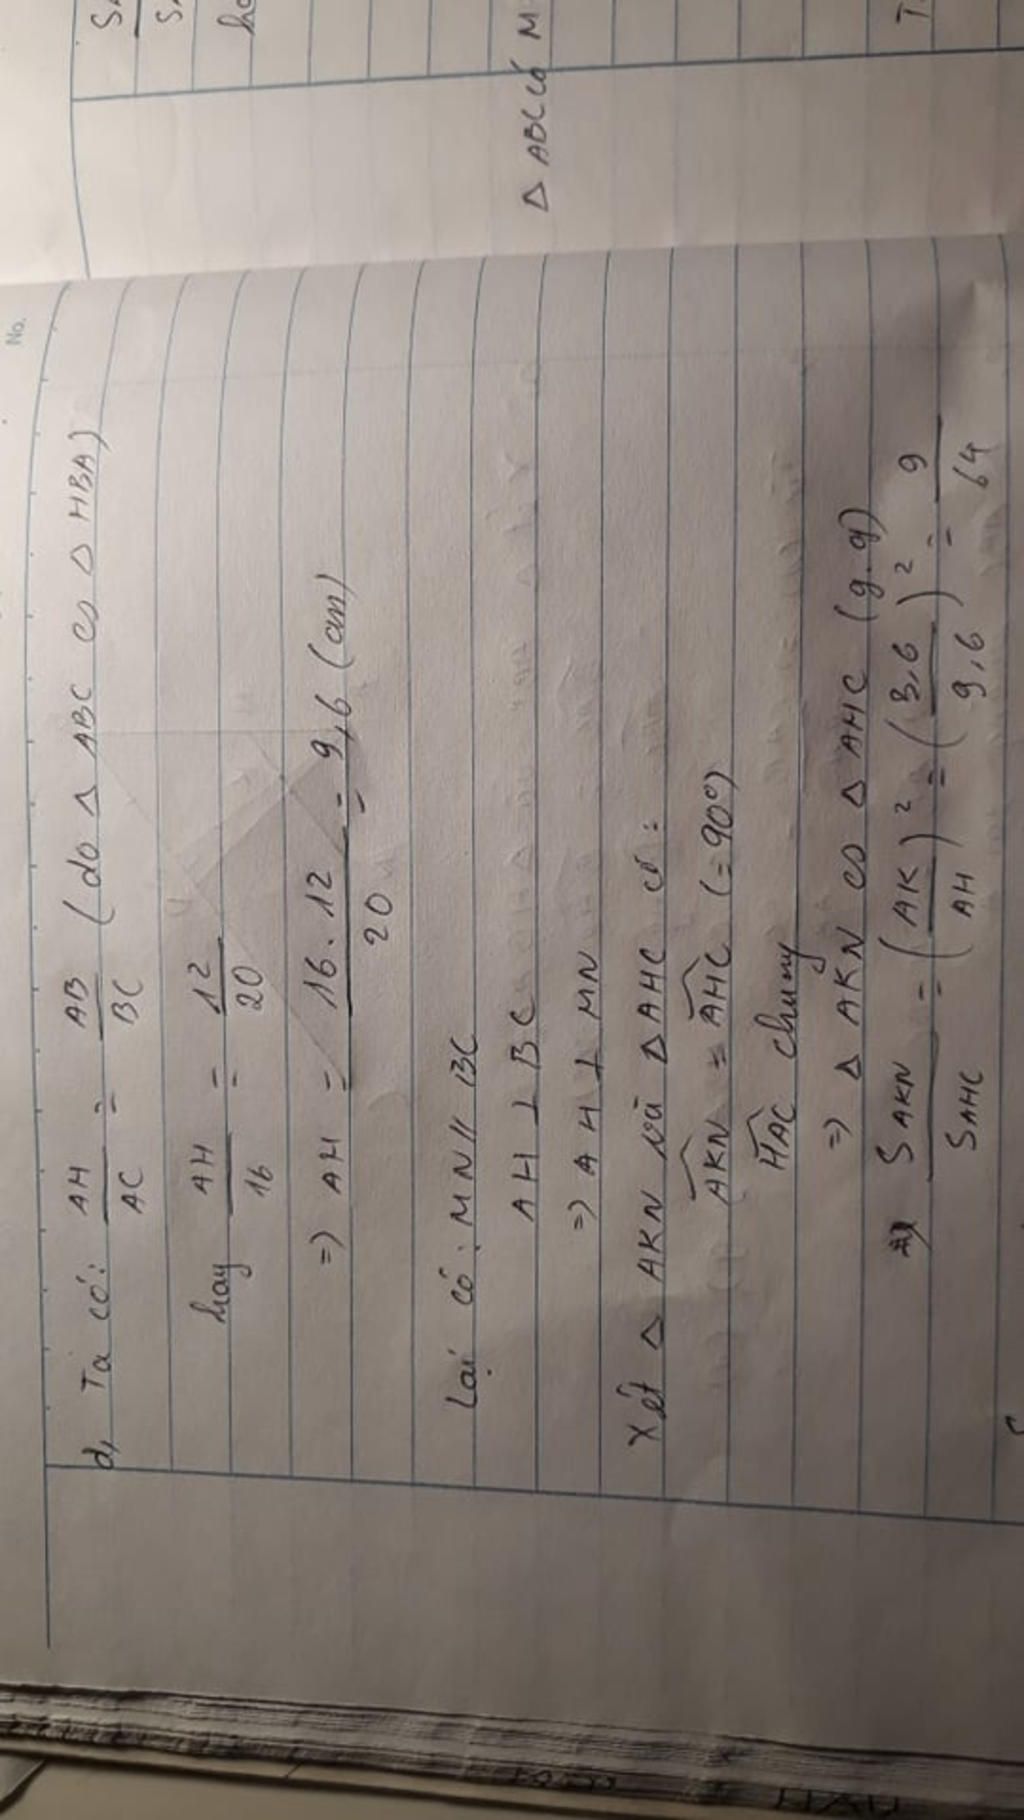 No.
d, Ta có: AH/AC = AB/BC (do △ ABC ∽ △ HBA)
hay AH/16 = 12/20
=) AH = 16.12/20 = 9,6 (cm)
Lại có: MN // BC
AH ⊥ BC
=) AH ⊥ MN
Xét △ AKN và △ AHC có:
AKN = AHC (= 90°)
HAC chung
=) △ AKN ∽ △ AHC (g.g)
S AKN / S AHC = (AK/AH)² = (3,6/9,6)² = 9/64
△ ABC có M